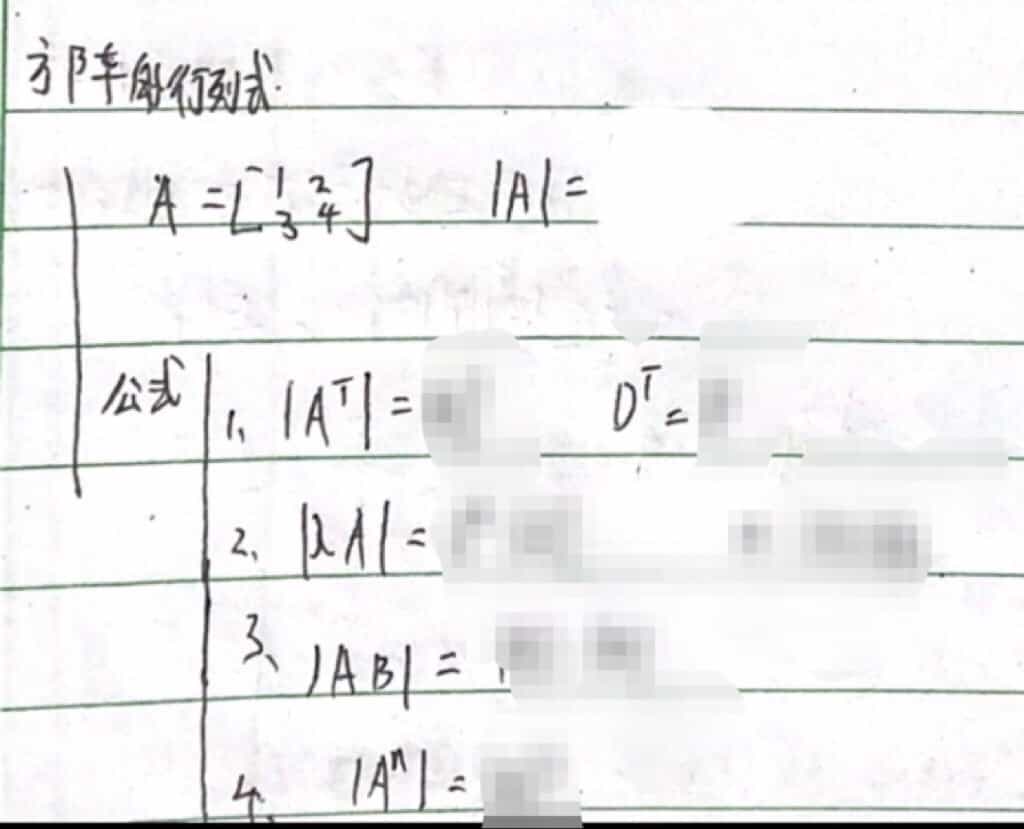 方阵的行列式.
A = [1 2
3 4] |A| =
公式
1、|Aᵀ| = Dᵀ =
2、|λA| =
3、|AB| =
4、|Aⁿ| =